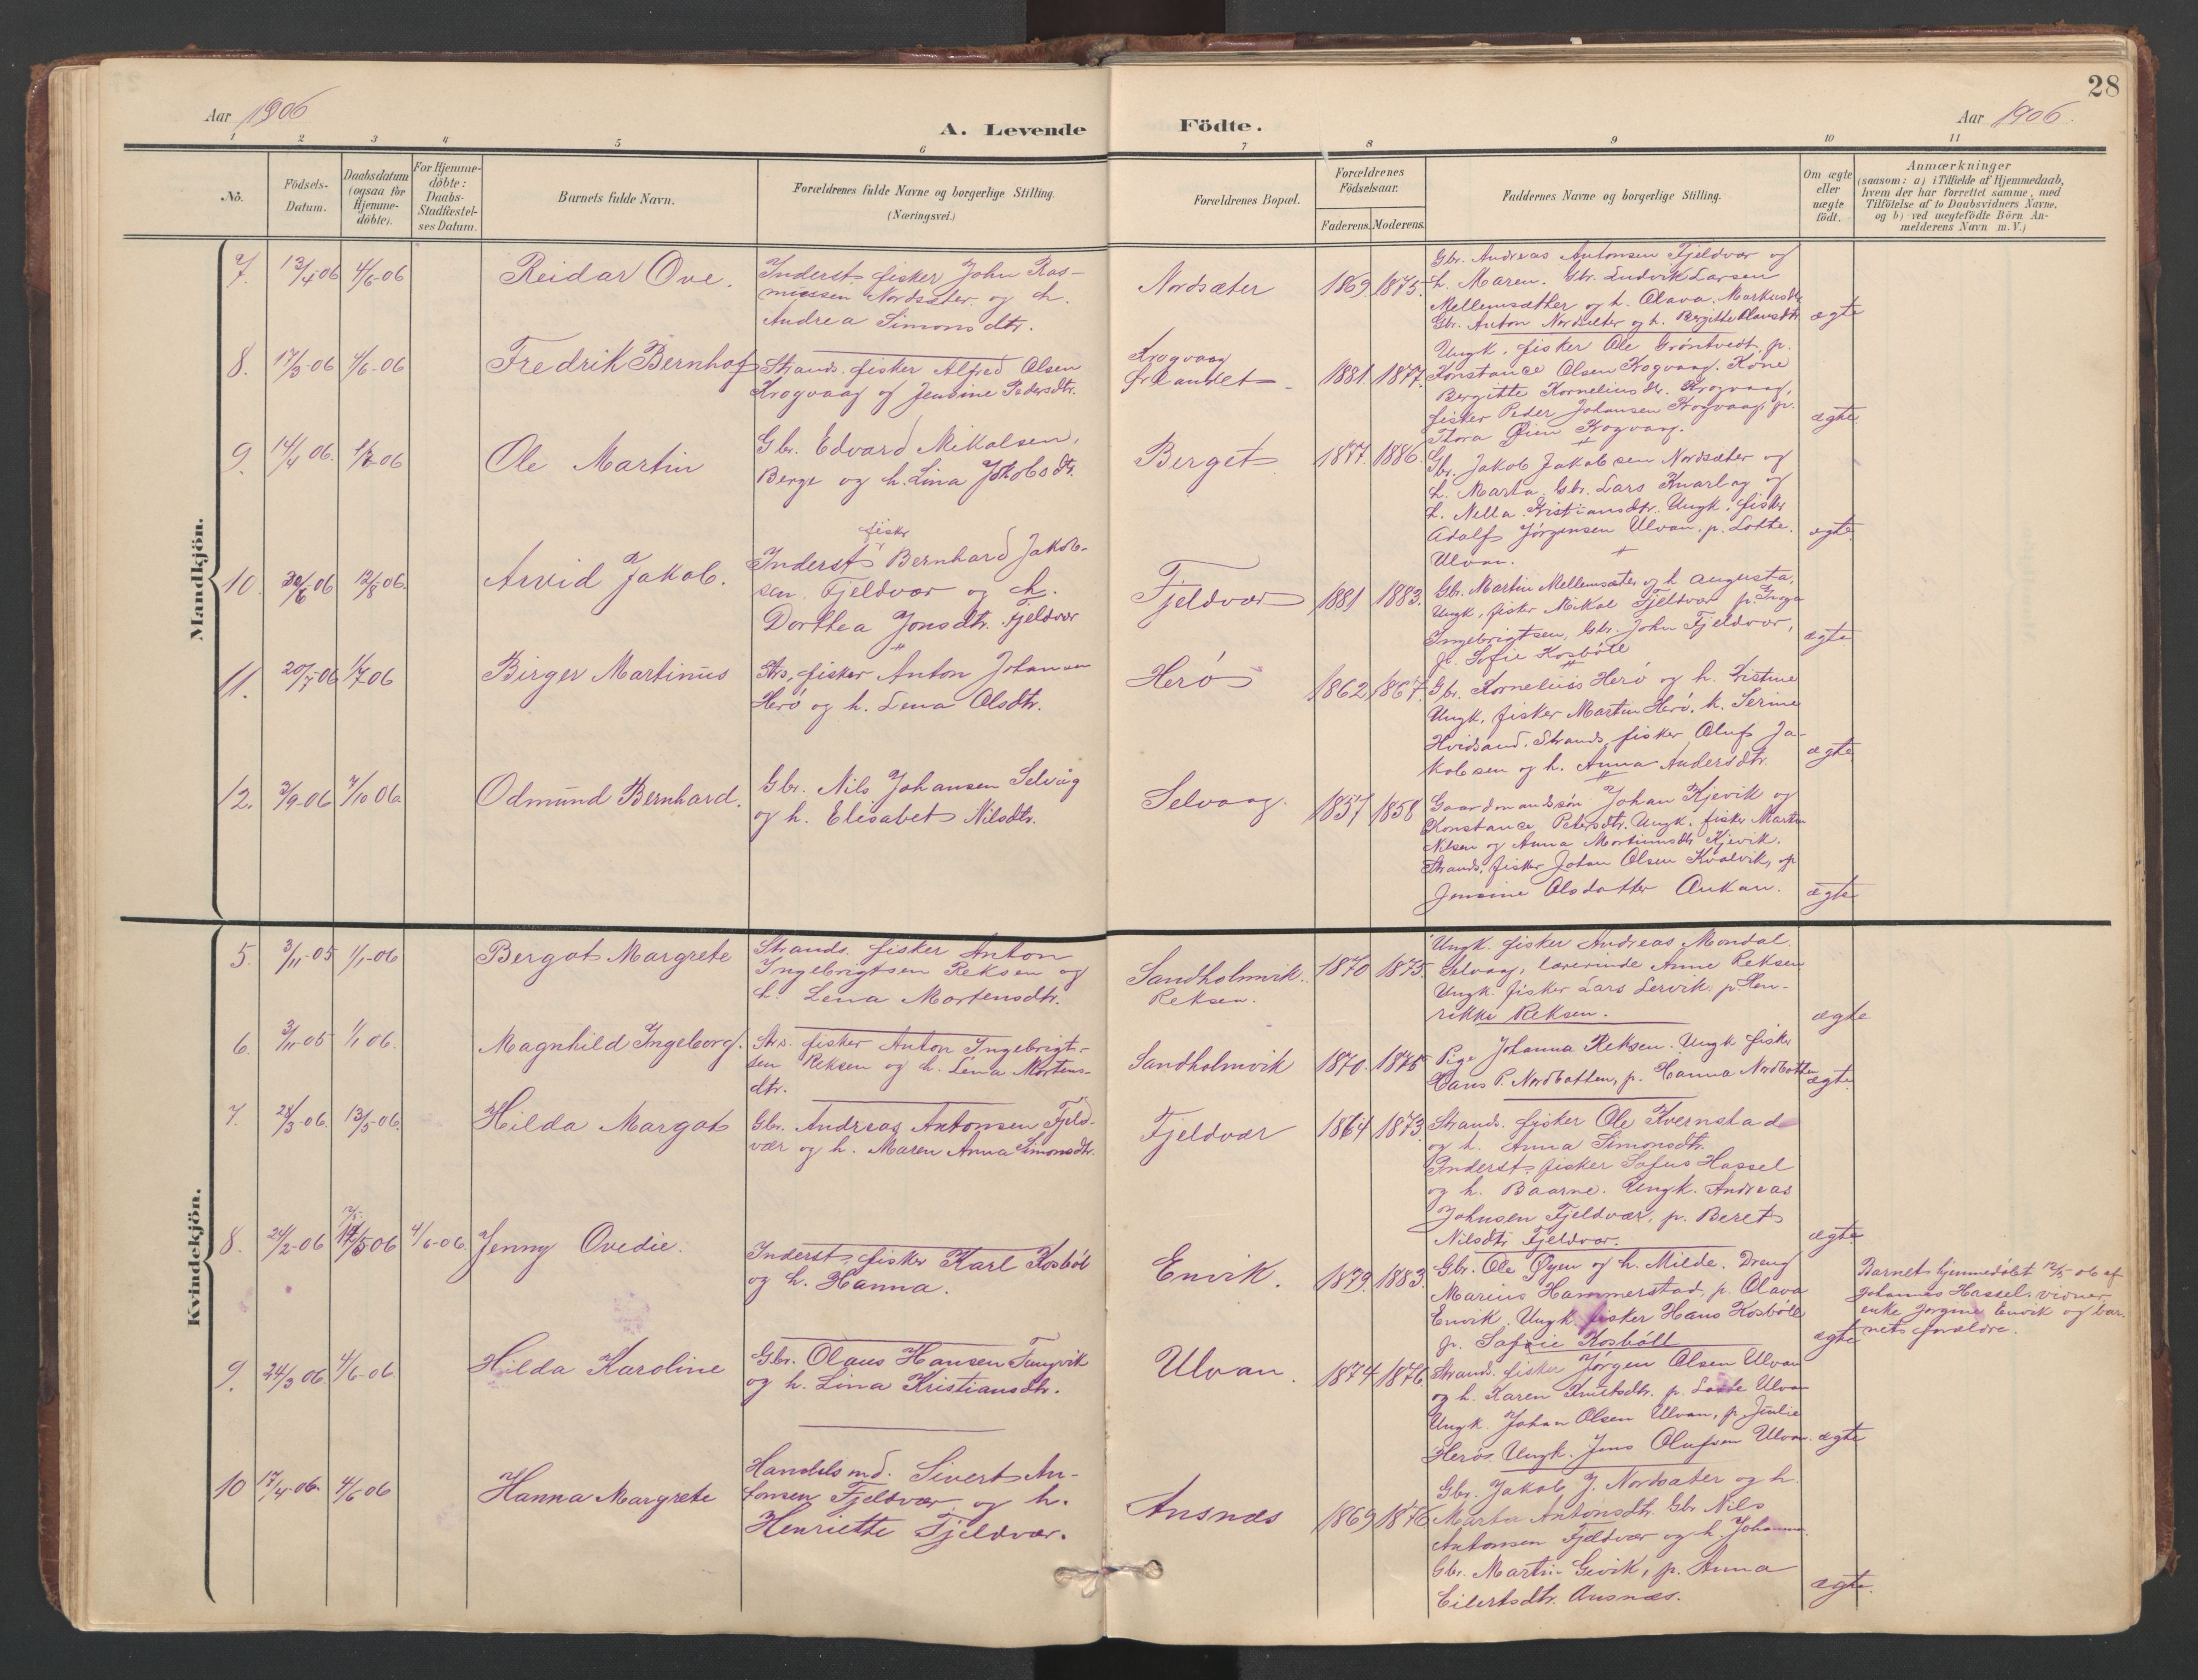 28
Aar 1906
Aar 1906.
A. Levende Födte.
1 2 3 4 5 6 7 8 9 10 11
No.
Födsels-
Datum.
Daabsdatum
(ogsaa for
Hjemme-
döbte).
For Hjemme-
döbte:
Daabs-
Stadfæstel-
ses Datum.
Barnets fulde Navn.
Forældrenes fulde Navne og borgerlige Stilling.
(Næringsvei.)
Forældrenes Bopæl.
Forældrenes
Födselsaar.
Faderens. Moderens.
Faddernes Navne og borgerlige Stilling.
Om ægte
eller
uægte
födt.
Anmærkninger
(saasom: a) i Tilfælde af Hjemmedaab,
hvem der har forrettet samme, med
Tilföielse af to Daabsvidners Navne,
og b) ved uægtefödte Börn An-
melderens Navn m. V.)
Mandkjön.
7. 13/4 06 4/6-06 Reidar Ove.
Inderst, fisker John Ras-
mussen Nordsæter og h.
Andrea Simonsdtr.
Nordsæter 1869 1875.
Gbr. Andreas Antonsen Fjeldvær og
h. Maren. Gbr. Ludvik Larsen
Mellemsæther og h. Olava Markusdtr
Gbr. Anton Nordsæter og h. Bergitte Olausdtr
ægte
8. 17/3-06 4/6-06 Fredrik Bernhof
Strands. fisker Alfred Olsen
Krogvaag og Jensine Pedersdtr.
Krogvaag
1881. 1877.
Ungk. fisker Ole Grøntvedt, p.
Konstance Olsen Krogvaag. Kone
Bergitte Korneliusdtr. Krogvaag,
fisker Peder Johansen Krogvaag, p.
Thora Øien Krogvaag.
ægte
9. 14/4 06. -06 Ole Martin
Gbr. Edvard Mikalsen,
Berge og h. Lina Jakobsdtr.
Berget 1877. 1886.
Gbr. Jakob Jakobsen Nordsæter og
h. Marta. Gbr. Lars Kvarlag og
h. Nella Kristiansdtr. Ungk. fisker
Adolf Jørgensen Ulvan, p. Lotte
Ulvan.
ægte
10. 30/6 06 12/8-06. Arvid Jakob.
fisker
Inderst Bernhard Jakob-
sen Fjeldvær og h.
Dorthea Jonsdtr. Fjeldvær
Fjeldvær 1881 1883.
Gbr. Martin Mellemsæter og h Augusta,
Ungk. fisker Mikal Fjeldvær p. Inga
Ingebrigtsen, Gbr. John Fjeldvær,
p. Sofie Kosbøll
ægte
11. 20/7-06 Birger Martinus
Strs. fisker Anton Johansen
Herø og h. Lena Olsdtr.
Herø 1862 1867.
Gbr. Kornelius Herø og h. Kristine
Ungk. fisker Martin Herø. k. Serine
Hvidsand. Strands. fisker Oluf Ja-
kobsen og h. Anna Andersdtr.
ægte
12. 3/9-06 7/10 06 Odmund Bernhard.
Gbr. Nils Johansen Selvåg
og h. Elisabet Nilsdtr.
Selvaag. 1857 1858
Gaardmandssøn Johan Kjevik og
Konstance Petersdtr. Ungk. fisker Martin
Nilsen og Anna Mortinusdtr Kjevik.
Strands. fisker Johan Olsen Kvalvik, p
Jensine Olsdatter Aukan.
ægte
Kvindekjön.
5. 3/11-05 1/1-06 Bergot Margrete
Strands. fisker Anton
Ingebrigtsen Reksen og
h. Lena Mortensdtr.
Sandholmvik.
Reksen.
1870 1875.
Ungk. fisker Andreas Mondal
Selvaag, lærerinde Anne Reksen
Ungk. fisker Lars Lervik. p. Hen-
rikke Reksen.
ægte
6. 3/11-05 1/1 06. Magnhild Ingeborg.
Strs. fisker Anton Ingebrigt-
sen Reksen og h. Lena Mortens-
dtr.
Sandholmvik 1870. 1875
Pige Johanna Reksen. Ungk fisker
Hans P. Nordbotten, p. Hanna Nordbotten
ægte
7. 28/3-06. 13/5-06. Hilda Margot
Gbr. Andreas Antonsen Fjeld-
vær og h. Maren Anna Simonsdtr.
Fjeldvær 1864 1873.
Strands. fisker Ole Kvernstad
og h. Anna Simonsdtr.
Inderst, fisker Sofus Hassel
og h. Baarne. Ungk. Andreas
Johnsen Fjeldvær, p. Beret
Nilsdtr Fjeldvær.
ægte
8. 24/2-06 /5 06 4/6-06. Jenny Ovedie.
Inderst, fisker Karl Kosbøl
og h. Hanna.
Envik. 1879. 1883.
Gbr. Ole Øyen og h. Milde. Dreng
Marius Hammerstad, p. Olava
Envik. Ungk. fisker Hans Kosbøll
p. Sofie Kosbøll
ægte
Barnet hjemmedøbt 12/5-06 af
Johannes Hassel, vidner
enke Jørgine Envik og bar-
nets forældre.
9. 24/3 06. 4/6-06. Hilda Karoline
Gbr. Olaus Hansen Tungvik
og h. Lina Kristiansdtr.
Ulvan. 1874 1876
Strands. fisker Jørgen Olsen Ulvan
og h. Karen Knutsdtr. p. Lotte Ulvan
Ungk. Johan Olsen Ulvan, p. Julie
Herøs. Ungk. Jens Olufsen Ulvan.
ægte
10 17/4-06. 4/6 06 Hanna Margrete
Handelsmd. Sivert An-
tonsen Fjeldvær og h.
Henriette Fjeldvær.
Ansnæs 1869 1876
Gbr. Jakob J. Nordsæter og h.
Marta Antonsdtr. Gbr Nils
Antonsen Fjeldvær og h. Johanna
Gbr. Martin Gjevik, p. Anna
Eilertsdtr. Ansnæs.
ægte.